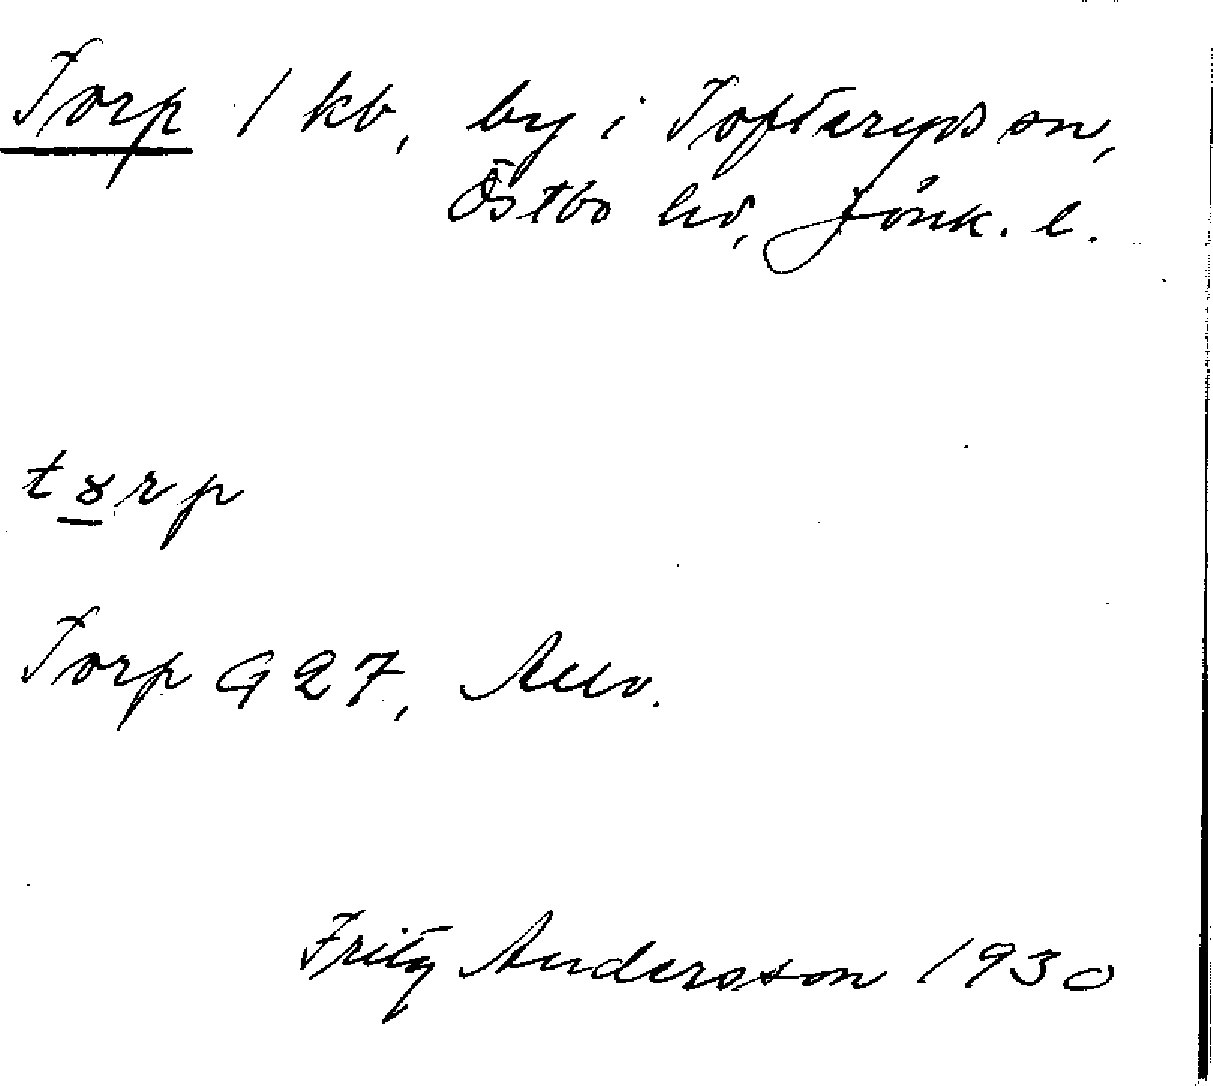 Torp 1 kb, by i Tofteryds sn,
Östbo hd, Jönk. l.
tɤrp
Torp G 27, Allo.
Fritz Andersson 1930